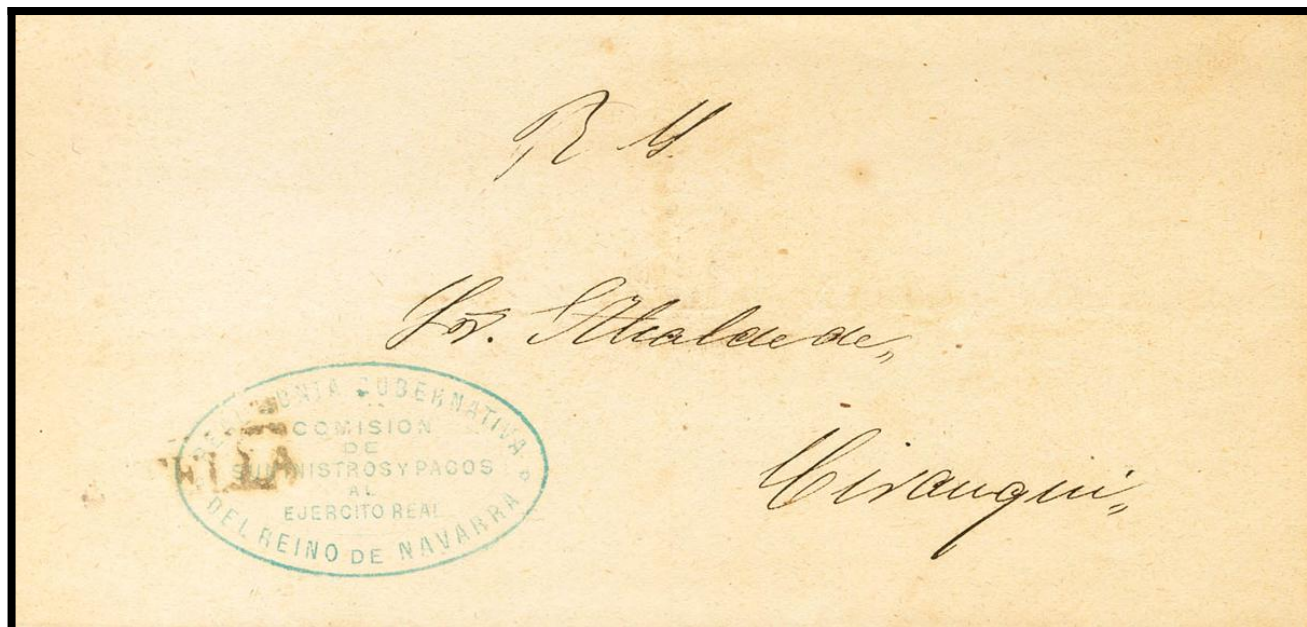 R S.
Sor. Alcalde de„
Cirauqui„
REAL JUNTA GUBERNATIVA
COMISION
DE
SUMINISTROS Y PAGOS
AL
EJERCITO REAL
DEL REINO DE NAVARRA
ELLA